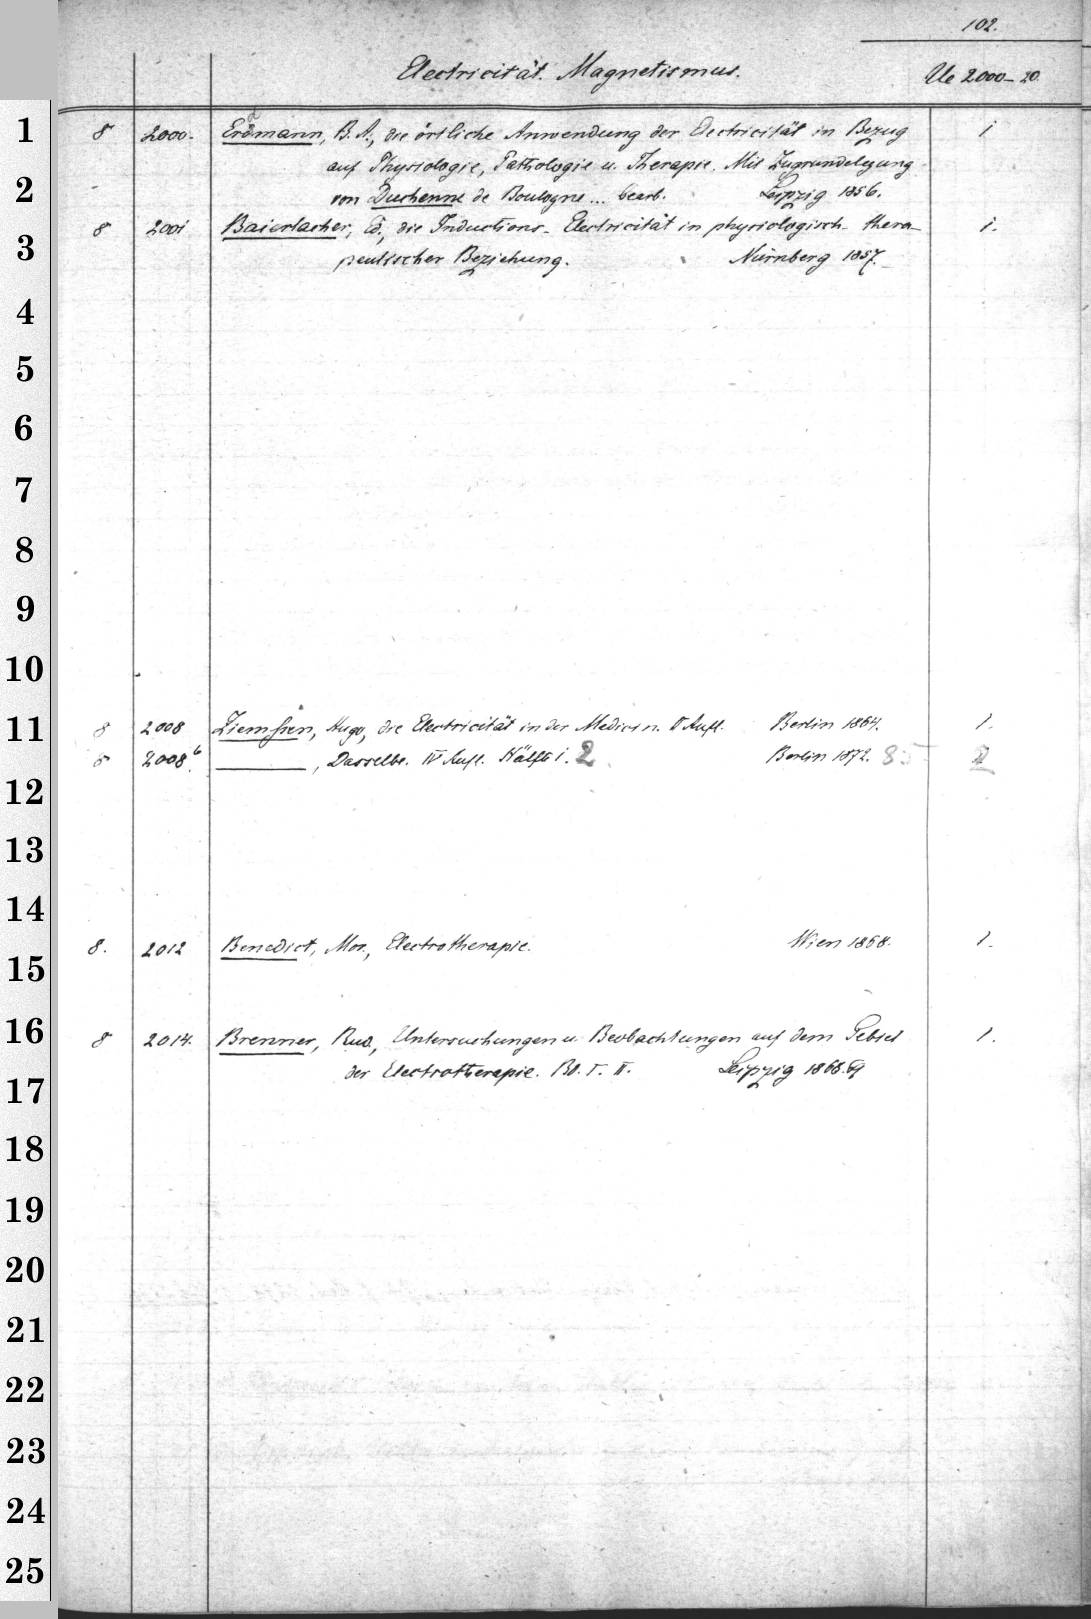 102.
Electricität. Magnetismus. Ue 2000–20
1
8 2000. Erdmann, B. A., die örtliche Anwendung der Electricität in Bezug 1
auf Physiologie, Pathologie u. Therapie. Mit Zugrundelegung
2
von Duchenne de Boulogne ... bearb. Leipzig 1856.
8 2001 Baierlacher, Ed., die Inductions-Electricität in physiologisch-thera- 1.
3
peutischer Beziehung. Nürnberg 1857.
4
5
6
7
8
9
10
11
8 2008 Ziemssen, Hugo, die Electricität in der Medicin. II Aufl. Berlin 1864. 1.
8 2008b. ———, Dasselbe. IV Aufl. Hälfte 1. 2 Berlin 1872. 85 2
12
13
14
8. 2012 Benedict, Mor., Electrotherapie. Wien 1868. 1.
15
16
8 2014. Brenner, Rud., Untersuchungen u. Beobachtungen auf dem Gebiet 1.
der Electrotherapie. Bd. I. II. Leipzig 1868.69
17
18
19
20
21
22
23
24
25